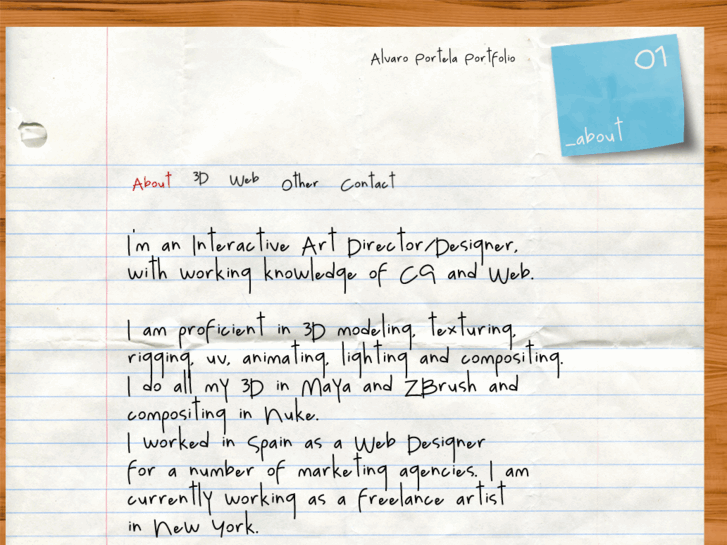 Alvaro Portela Portfolio
01
_about
About 3D Web Other Contact
I'm an Interactive Art Director/Designer,
with working knowledge of CG and Web.
I am proficient in 3D modeling, texturing,
rigging, uv, animating, lighting and compositing.
I do all my 3D in Maya and ZBrush and
compositing in Nuke.
I worked in Spain as a Web Designer
for a number of marketing agencies. I am
currently working as a freelance artist
in New York.